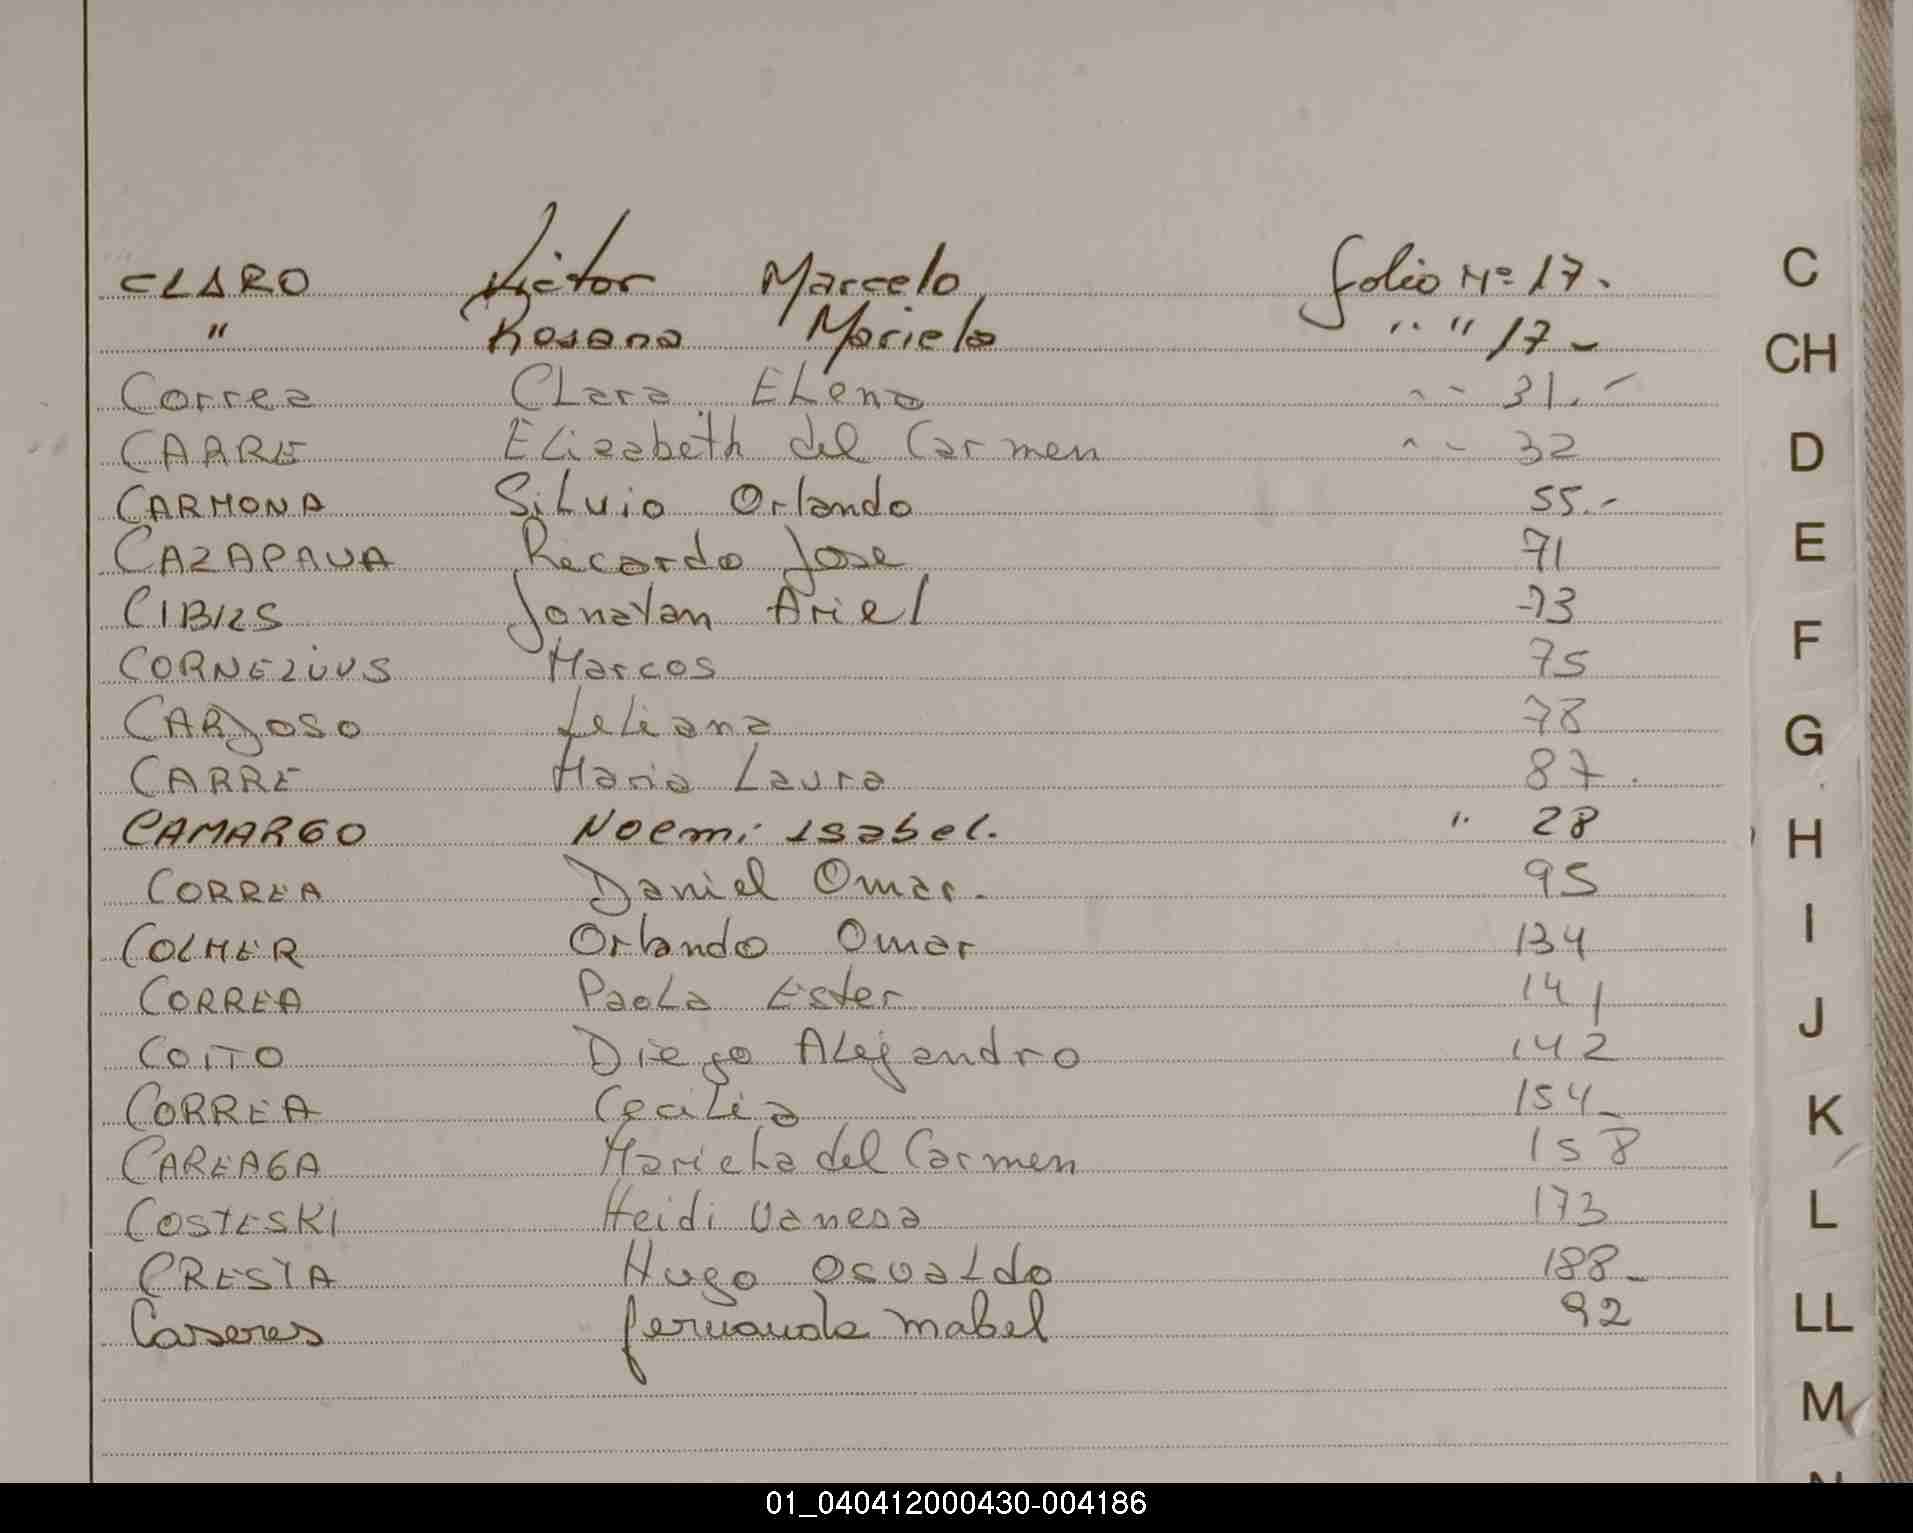 CLARO Victor Marcelo folio Nº 17.
" Rosana Mariela " " 17-
Correa CLara ELena " " 31.-
CARRE ELizabeth del Carmen " " 32
CARMONA SiLvio Orlando 55.-
CAZAPAVA Ricardo Jose 71
CIBILS Jonatan Ariel 73
CORNELIUS Marcos 75
CARDOSO LiLiana 78
CARRE Maria Laura 87.
CAMARGO Noemi Isabel. " 28
CORREA Daniel Omar. 95
COLMER Orlando Omar 134
CORREA PaoLa Ester 141
COITO Diego ALejandro 142
CORREA CeciLia 154-
CAREAGA MarieLa del Carmen 158
COSTESKI Heidi Vanesa 173
CRESTA Hugo OsvaLdo 188-
Caseres fernanda mabel 92
C
CH
D
E
F
G
H
I
J
K
L
LL
M
01_040412000430-004186